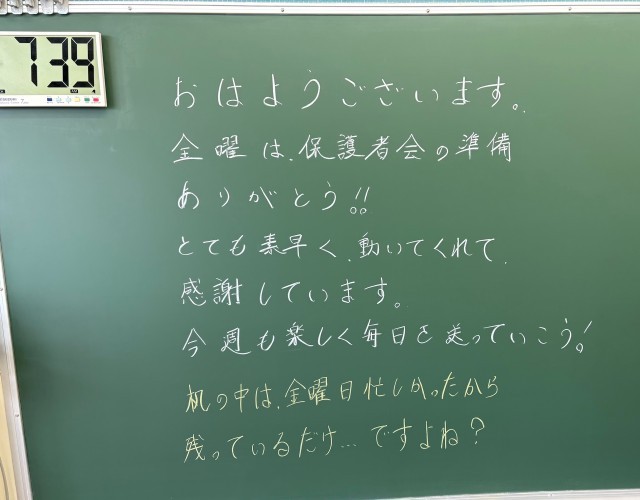 739
おはようございます。
金曜は、保護者会の準備
ありがとう!!
とても素早く、動いてくれて、
感謝しています。
今週も楽しく毎日を送っていこう!
机の中は、金曜日忙しかったから
残っているだけ…ですよね?